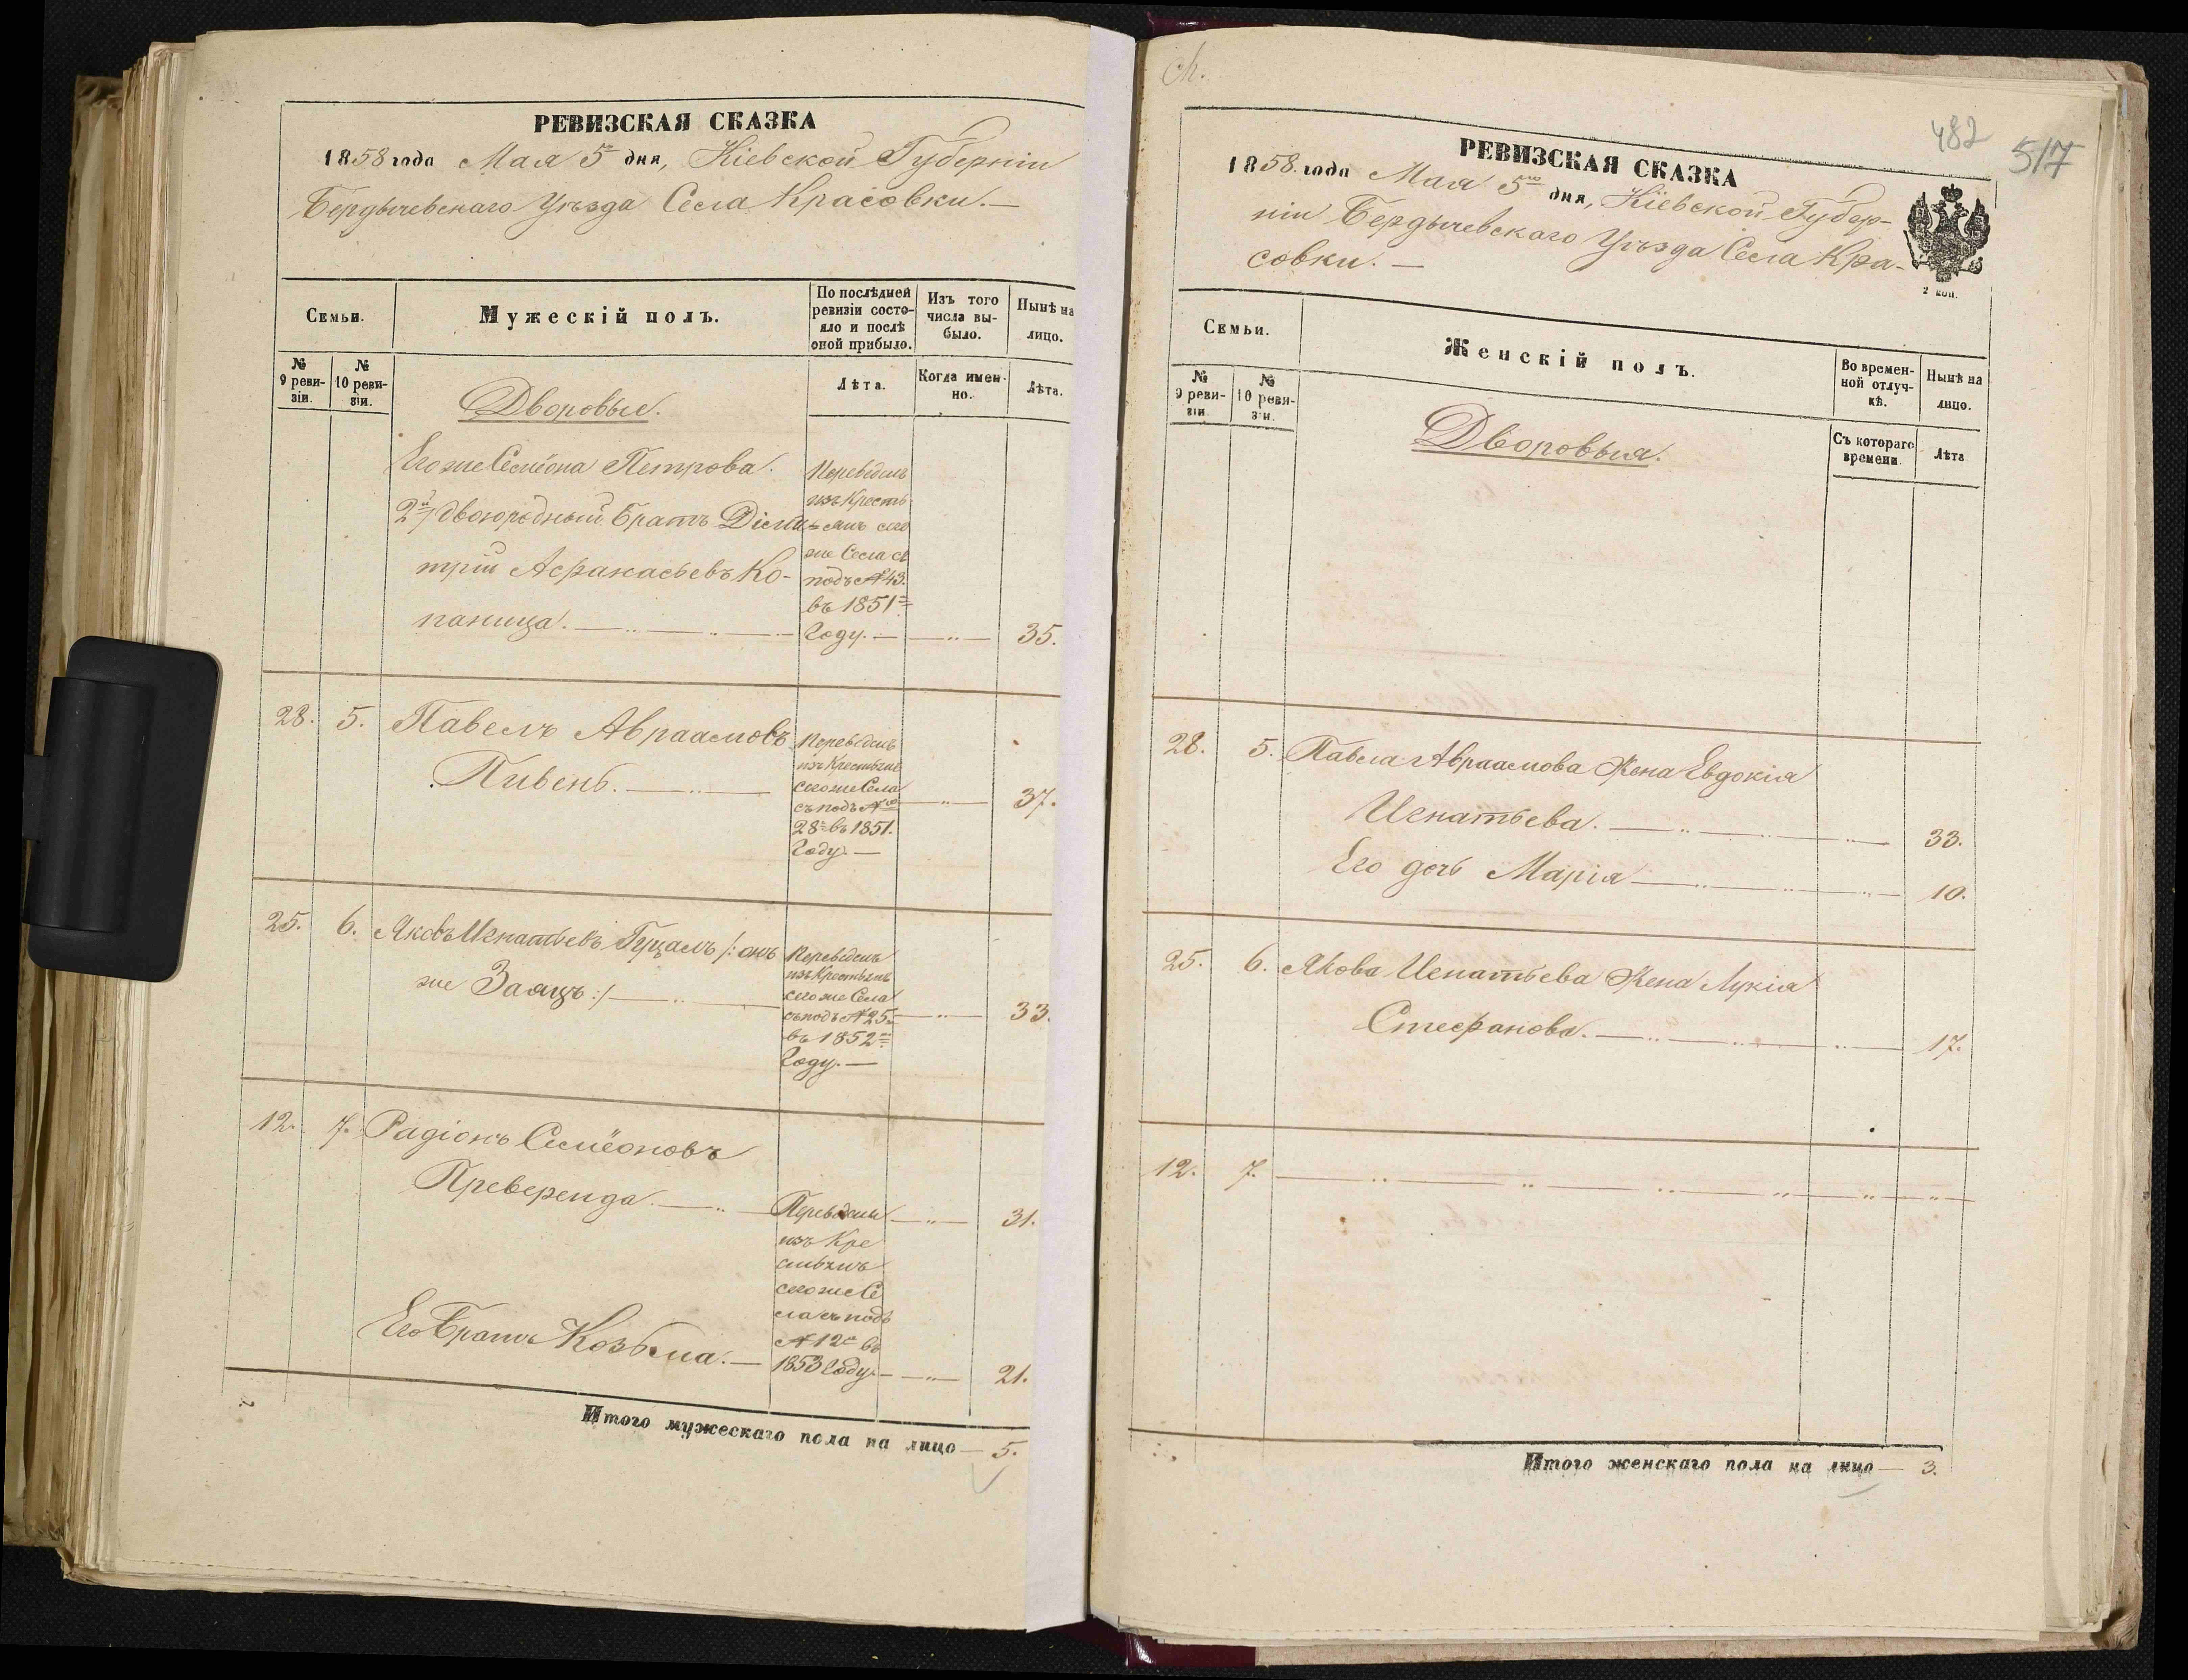 РЕВИЗСКАЯ СКАЗКА
1858 года Мая 5го дня, Кіевской Губерніи
Бердычевскаго Уѣзда Села Красовки.—
Семьи.
Мужескій полъ.
По послѣдней ревизіи состояло и послѣ оной прибыло.
Изъ того числа выбыло.
Нынѣ на лицо.
№ 9 ревизіи.
№ 10 ревизіи.
Лѣта.
Когда именно.
Лѣта.
Дворовые.
Его же Семіона Петрова.
2й двоюродный братъ Дими-
трій Афанасьевъ Ко-
паница.
Переведенъ
изъ Кресть-
янъ сего
же Села съ
подъ № 43.
въ 1851
Году.— 35.
28. 5. Павелъ Авраамовъ
Пивень.
Переведенъ
изъ Крестьянъ
сего же Села
съ подъ № 37.
28 въ 1851.
Году.—
25. 6. Яковъ Игнатьевъ Гуцалъ /: онъ
же Заяцъ :/
Переведенъ
изъ Крестьянъ
сего же Села
съ подъ № 25 33.
въ 1852
Году.—
12. 7. Радіонъ Семіоновъ
Преверенда.
Переведены 31.
изъ Кре
стьянъ
сего же Се
ла съ подъ
№ 12 въ
Его Братъ Козьма.— 1853 Году.— 21.
Итого мужескаго пола на лицо— 5.
482
517
РЕВИЗСКАЯ СКАЗКА
1858. года Мая 5го дня, Кіевской Губер-
ніи Бердычевскаго Уѣзда Села Кра-
совки.—
2 коп.
Семьи.
Женскій полъ.
Во временной отлучкѣ.
Нынѣ на лицо.
№ 9 ревизіи
№ 10 ревизіи.
Съ котораго времени.
Лѣта
Дворовыя.
28. 5. Павла Авраамова Жена Евдокія
Игнатьева. 33.
Его дочь Марія 10.
25. 6. Якова Игнатьева Жена Лукія
Стефанова. 17.
12. 7.
Итого женскаго пола на лицо— 3.